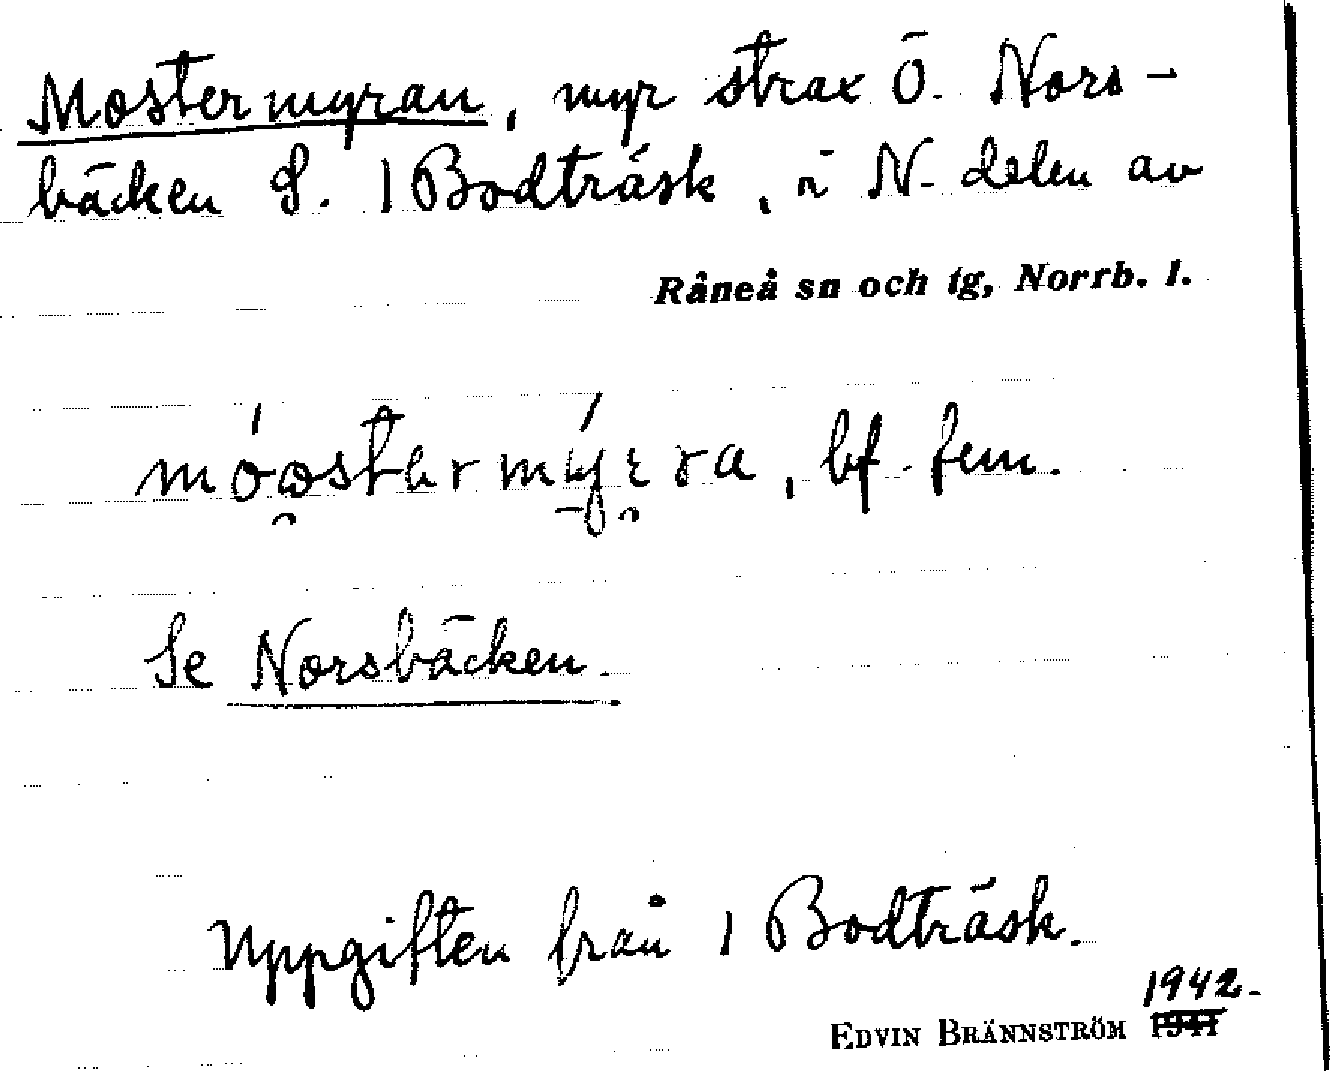 Mostermyran, myr strax Ö. Nors-
bäcken S. 1 Bodträsk, i N. delen av
Råneå sn och tg, Norrb. l.
móostermýrra, bf. fem.
Se Norsbäcken.
Uppgiften från 1 Bodträsk.
1942.
EDVIN BRÄNNSTRÖM 1941